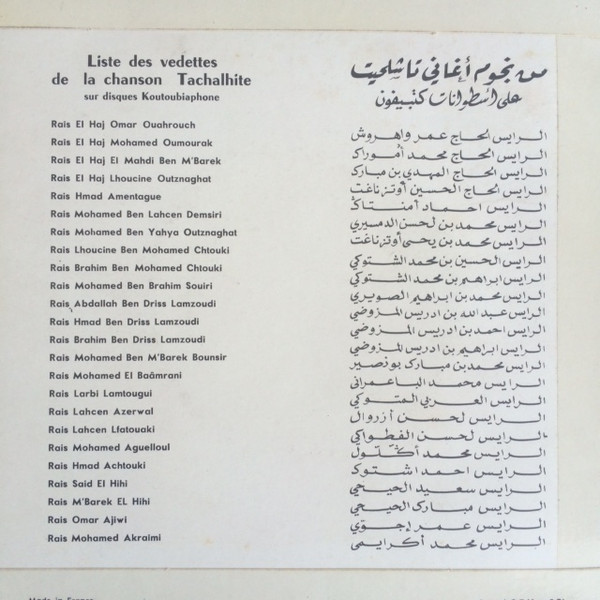 Liste des vedettes
de la chanson Tachalhite
sur disques Koutoubiaphone
Rais El Haj Omar Ouahrouch
Rais El Haj Mohamed Oumourak
Rais El Haj El Mahdi Ben M'Barek
Rais El Haj Lhoucine Outznaghat
Rais Hmad Amentague
Rais Mohamed Ben Lahcen Demsiri
Rais Mohamed Ben Yahya Outznaghat
Rais Lhoucine Ben Mohamed Chtouki
Rais Brahim Ben Mohamed Chtouki
Rais Mohamed Ben Brahim Souiri
Rais Abdallah Ben Driss Lamzoudi
Rais Hmad Ben Driss Lamzoudi
Rais Brahim Ben Driss Lamzoudi
Rais Mohamed Ben M'Barek Bounsir
Rais Mohamed El Baâmrani
Rais Larbi Lamtougui
Rais Lahcen Azerwal
Rais Lahcen Lfatouaki
Rais Mohamed Aguelloul
Rais Hmad Achtouki
Rais Said El Hihi
Rais M'Barek EL Hihi
Rais Omar Ajiwi
Rais Mohamed Akraimi
من نجوم أغاني تاشلحيت
على أسطوانات كتبيفون
الرايس الحاج عمر واهروش
الرايس الحاج محمد أموراك
الرايس الحاج المهدي بن مبارك
الرايس الحاج الحسين أوتزناغت
الرايس احماد أمنتاگ
الرايس محمد بن لحسن الدمسيري
الرايس محمد بن يحى أوتزناغت
الرايس الحسين بن محمد الشتوكي
الرايس ابراهيم بن محمد الشتوكي
الرايس محمد بن ابراهيم الصويري
الرايس عبد الله بن ادريس المزوضي
الرايس احمد بن ادريس المزوضي
الرايس ابراهيم بن ادريس المزوضي
الرايس محمد بن مبارك بونصير
الرايس محمد الباعمراني
الرايس العربي المتوكي
الرايس لحسن أزروال
الرايس لحسن الفطواكي
الرايس محمد أگلول
الرايس احمد اشتوك
الرايس سعيد الحيحي
الرايس مبارك الحيحي
الرايس عمر إجوي
الرايس محمد أكرايمى
Made in France